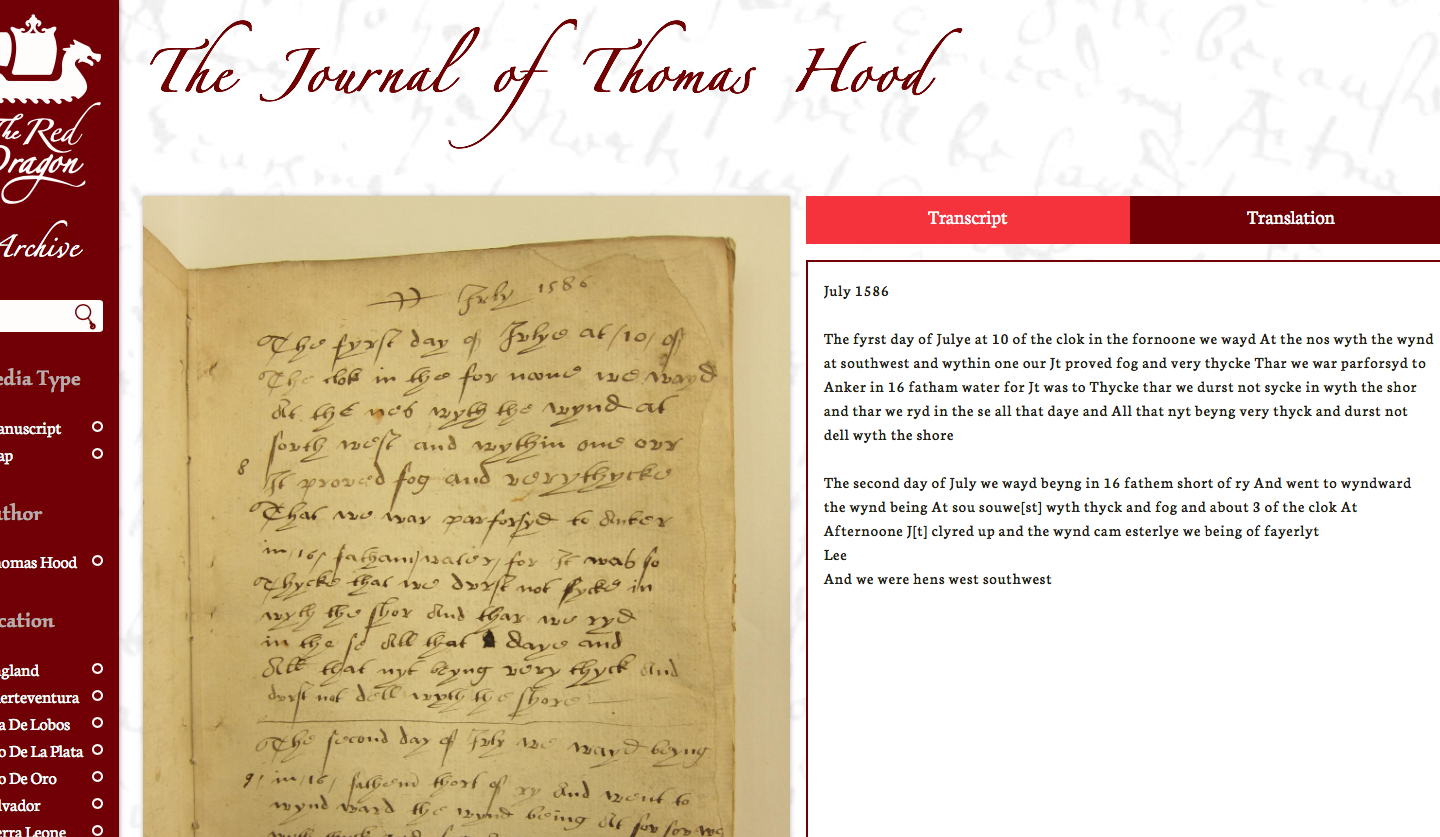 The Red
Dragon
Archive
edia Type
anuscript
ap
uthor
homas Hood
cation
ngland
uerteventura
a De Lobos
o De La Plata
o De Oro
lvador
erra Leone
The Journal of Thomas Hood
July 1586
The fyrst day of Julye at /10/ of
The clok in the for noone we wayd
At the nes wyth the wynd at
sowth west and wythin one owr
8
It proved fog and very thycke
That we war parforsyd to Anker
in /16/ fatham water for It was so
Thycke that we durst not sycke in
wyth the shor And thar we ryd
in the se All that daye and
All that nyt beyng very thyck And
durst not dell wyth the shore
The second day of July we wayd beyng
9/ in /16/ fathem short of ry And went to
wynd ward the wynd being At sou
Transcript
Translation
July 1586
The fyrst day of Julye at 10 of the clok in the fornoone we wayd At the nos wyth the wynd
at southwest and wythin one our Jt proved fog and very thycke Thar we war parforsyd to
Anker in 16 fatham water for Jt was to Thycke thar we durst not sycke in wyth the shor
and thar we ryd in the se all that daye and All that nyt beyng very thyck and durst not
dell wyth the shore
The second day of July we wayd beyng in 16 fathem short of ry And went to wyndward
the wynd being At sou souwe[st] wyth thyck and fog and about 3 of the clok At
Afternoone J[t] clyred up and the wynd cam esterlye we being of fayerlyt
Lee
And we were hens west southwest